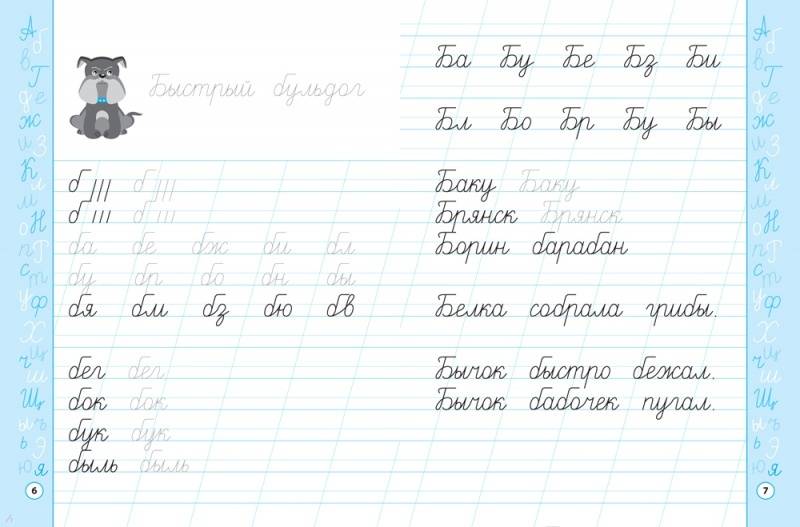 Быстрый бульдог
б б
б б
ба бе бж би бл
бу бр бо бн бы
бя бм бз бю бв
бег бег
бок бок
бук бук
быль быль
6
Ба Бу Бе Бз Би
Бл Бо Бр Бу Бы
Баку Баку
Брянск Брянск
Борин барабан
Белка собрала грибы.
Бычок быстро бежал.
Бычок бабочек пугал.
7